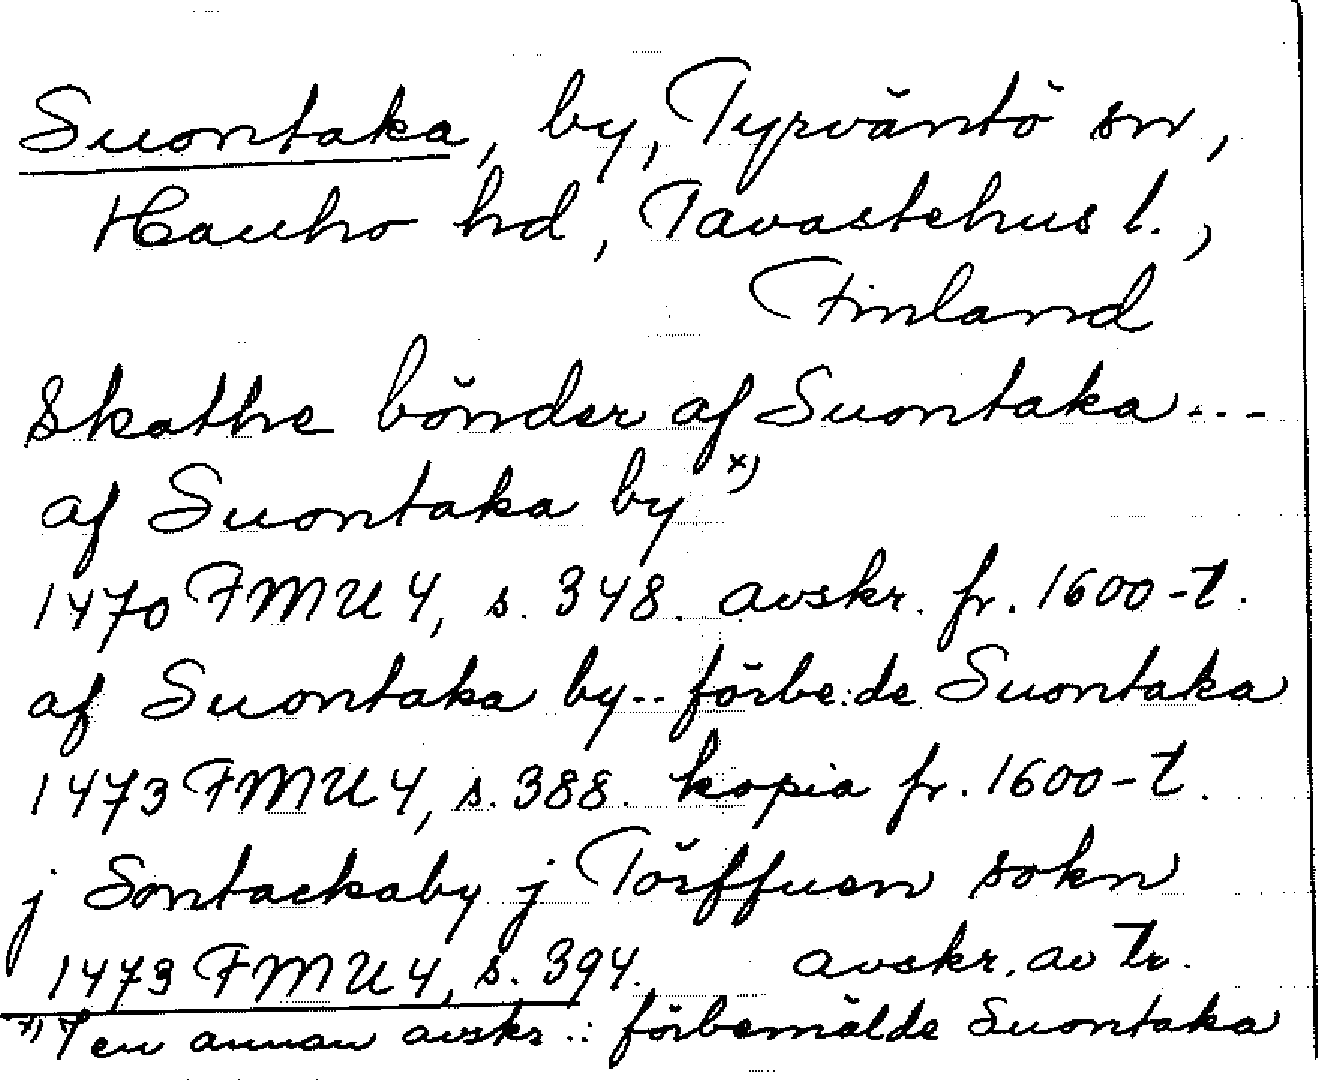 Suontaka, by, Tyrväntö sn,
Hauho hd, Tavastehus l.,
Finland
Skathe bönder af Suontaka...
af Suontaka by x)
1470 FMU 4, s. 348. avskr. fr. 1600-t.
af Suontaka by.. förbe:de Suontaka
1473 FMU 4, s. 388. kopia fr. 1600-t.
j Sontackaby j Törffuen sokn
1473 FMU 4, s. 394. avskr. av Tr.
x) I en annan avskr.: förbemälde Suontaka